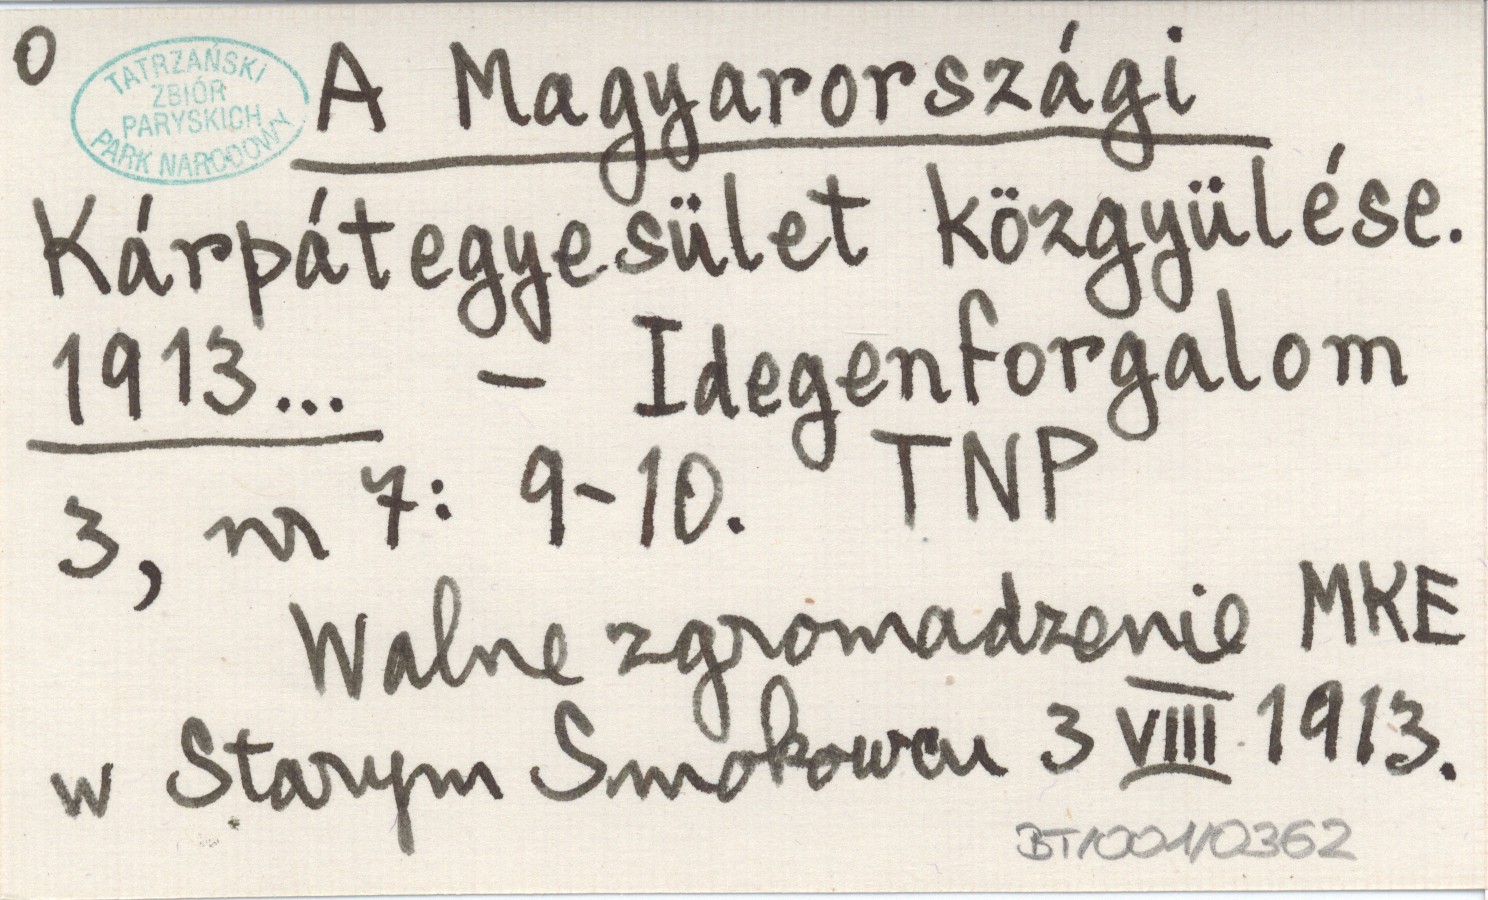 0
TATRZAŃSKI
ZBIÓR
PARYSKICH
PARK NARODOWY
A Magyarországi
Kárpátegyesület közgyülése.
1913... - Idegenforgalom
3, nr 7: 9-10. TNP
Walne zgromadzenie MKE
w Starym Smokowcu 3 VIII 1913.
BT/001/0362